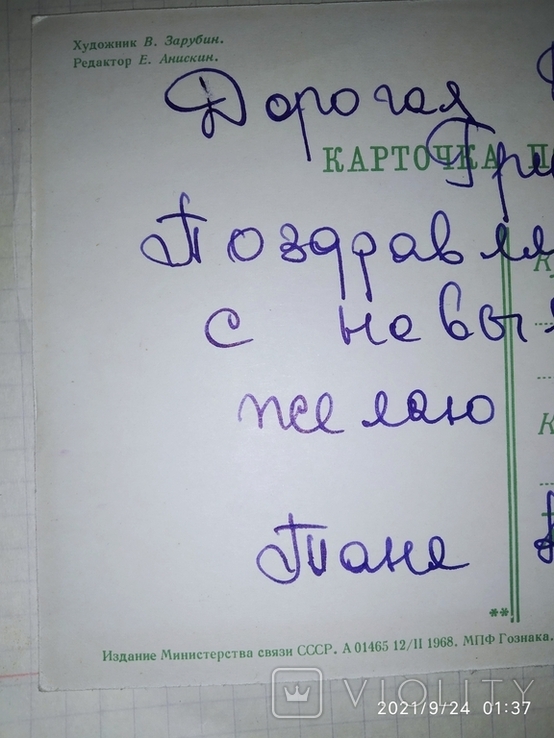 Художник В. Зарубин.
Редактор Е. Анискин.
Дорогая
КАРТОЧКА П
Гри
Поздравля
с новы
желаю
К
Таня
**
Издание Министерства связи СССР. А 01465 12/II 1968. МПФ Гознака.
VIOLITY
2021/9/24 01:37